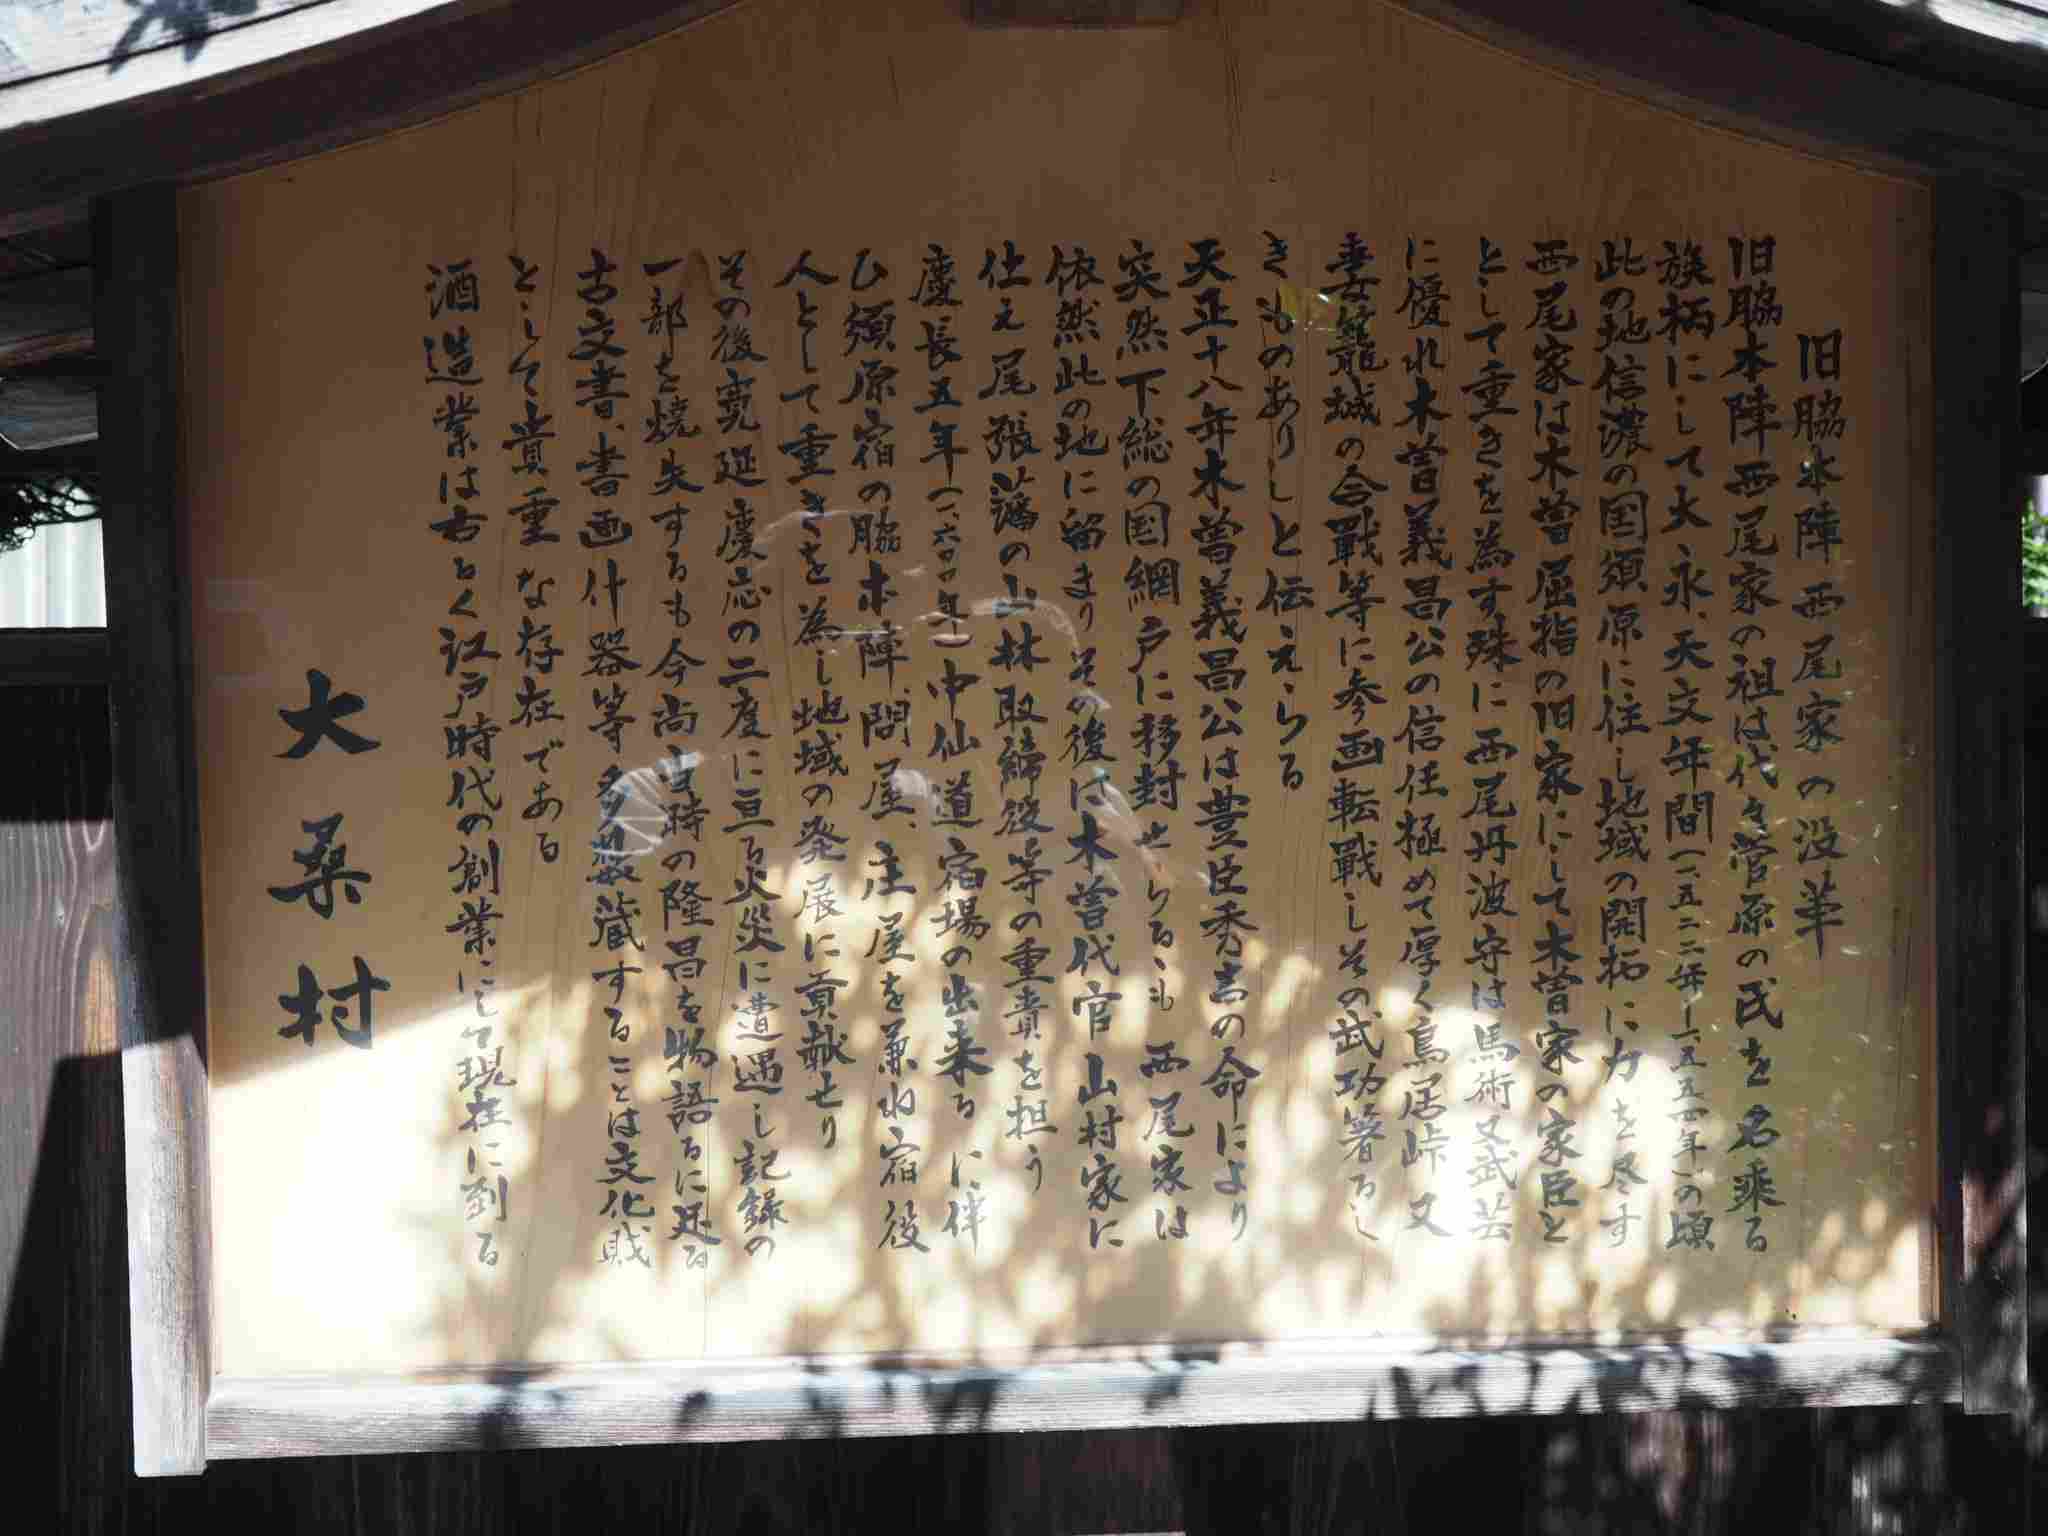 旧脇本陣西尾家の沿革
旧脇本陣西尾家の祖は代々菅原の氏を名乗る
族柄にして大永、天文年間(一、五二二年〜一、五五四年)の頃
此の地信濃の国須原に住し地域の開拓に力を尽す
西尾家は木曽屈指の旧家にして木曽家の家臣と
として重きを為す殊に西尾丹波守は馬術又武芸
に優れ木曽義昌公の信任極めて厚く鳥居峠又
妻籠城の合戰等に参画転戰しその武功箸るし
きものありしと伝えらる
天正十八年木曽義昌公は豊臣秀吉の命により
突然下総の国網戸に移封せらるゝも西尾家は
依然此の地に留まりその後は木曽代官山村家に
仕え尾張藩の山林取締役等の重責を担う
慶長五年(一、六〇〇年)中仙道宿場の出来るに伴
ひ須原宿の脇本陣、問屋、庄屋を兼ね宿役
人として重きを為し地域の発展に貢献せり
その後寛延慶応の二度に亘る火災に遭遇し記録の
一部を焼失するも今尚当時の隆昌を物語るに足る
古文書、書画什器等多数蔵することは文化財
として貴重な存在である
酒造業は古るく江戸時代の創業にして現在に到る
大桑村